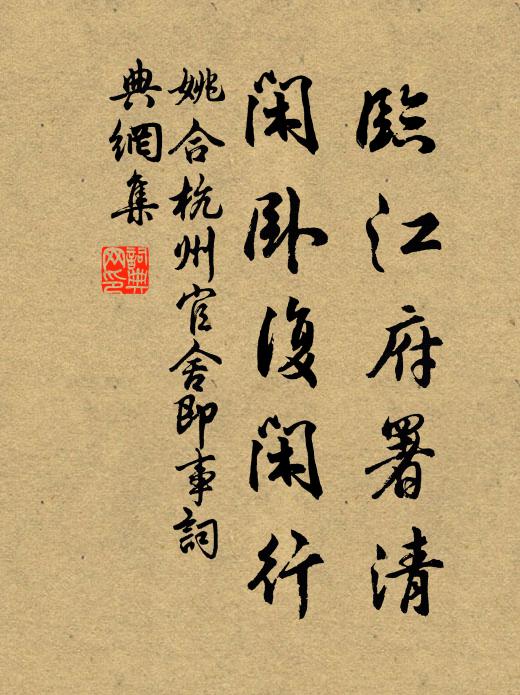 臨江府署清
閑卧復閑行
姚合杭州官舍即事詞
典網集
詞典
网印